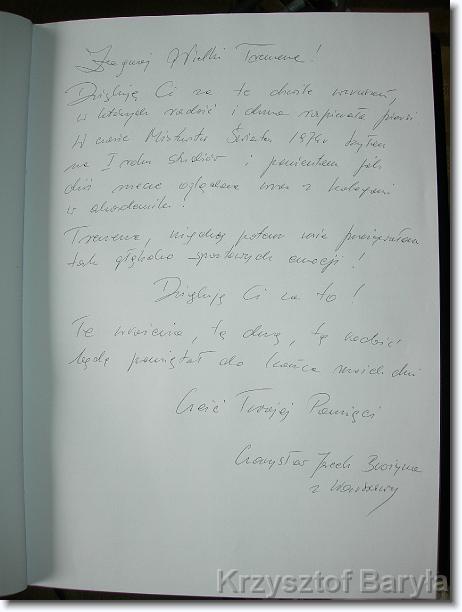 Żegnaj Wielki Trenerze!
Dziękuję Ci za te chwile wzruszeń,
w których radość i duma rozpierała piersi
W czasie Mistrzostw Świata 1974r byłem
na I roku studiów i pamiętam jak
dziś mecze oglądane wraz z kolegami
w akademiku.
Trenerze, nigdy potem nie przeżywałem
tak głęboko sportowych emocji!
Dziękuję Ci za to!
Te wrażenia, tę dumę, tę radość
będę pamiętał do końca moich dni
Cześć Twojej Pamięci
z Warszawy
Krzysztof Baryła